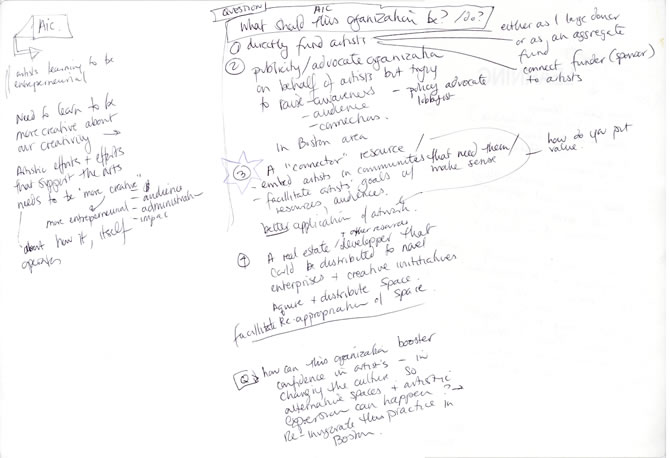 Aic.
artists learning to be
entrepreneurial
Need to learn to be
more creative about
our creativity
Artistic efforts + efforts
that support the arts
needs to be "more creative" $
- audience
more entrepreneurial - administration
- impac
about how it, itself
operates
QUESTION!
AIC
What should this organization be? /do?
① directly fund artists
either as 1 large donor
or as an aggregate
fund
connect funder (sponser)
to artists
② publicity/advocate organization
on behalf of artists but trying
to raise - awareness - policy advocate
lobbyist
- audience
- connections.
In Boston area
③ A "connector" resource /
- embed artists in communities that need them/
make sense
- facilitate artists' goals w/
resources, audiences.
how do you put
value.
better application of artwork.
+ other resources
④ A real estate/developper that
could be distributed to novel
enterprises + creative inititiatives
Aquire + distribute space.
facilitate Re-appropriation of space.
Q how can this organization booster
confidence in artists - in
changing the culture so
alternative spaces + artistic
expression can happen? →
Re-invigorate this practice in
Boston.